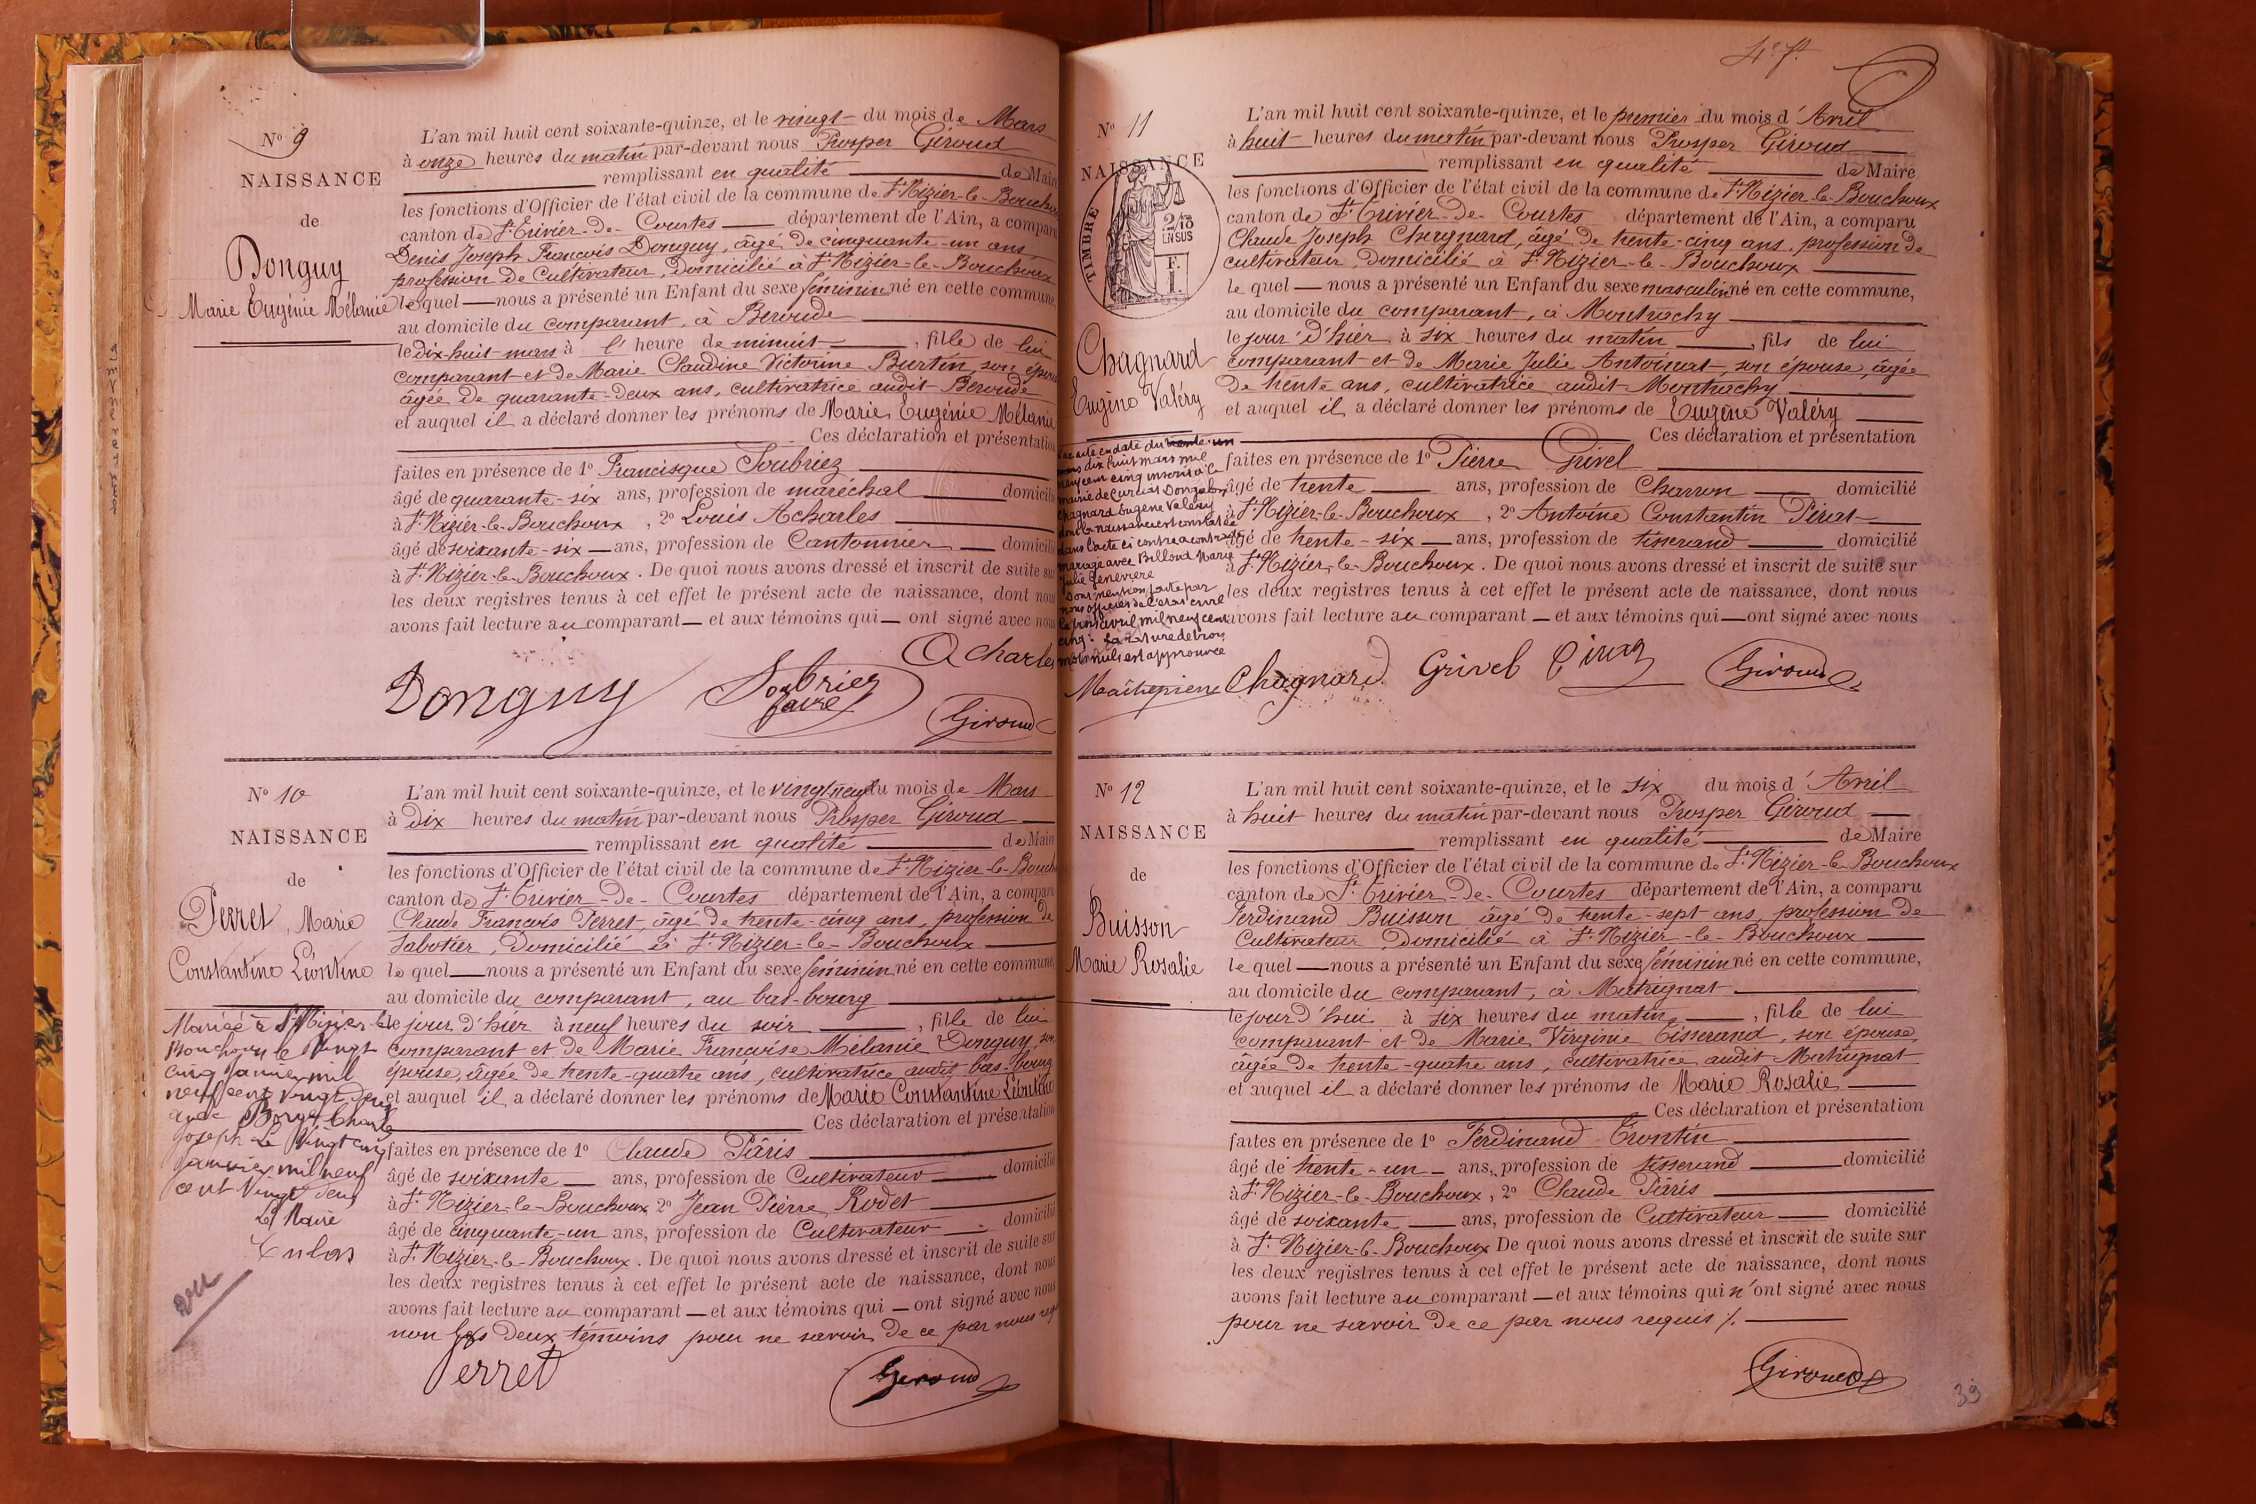 N° 9
NAISSANCE
de
Donguy
Marie Eugénie Mélanie
L'an mil huit cent soixante-quinze, et le vingt du mois de Mars
à onze heures du matin par-devant nous Prosper Giroud
remplissant en qualité de Maire
les fonctions d'Officier de l'état civil de la commune de St Nizier-le-Bouchoux
canton de St Trivier-de-Courtes département de l'Ain, a comparu
Denis Joseph François Donguy, âgé de cinquante-un ans
profession de Cultivateur, domicilié à St Nizier-le-Bouchoux
lequel nous a présenté un Enfant du sexe féminin né en cette commune,
au domicile du comparant, à Beroude
le dix-huit mars à l' heure de minuit, fille de lui
comparant et de Marie Claudine Victorine Buertin, son épouse
âgée de quarante-deux ans, cultivatrice audit Beroude
et auquel il a déclaré donner les prénoms de Marie Eugénie Mélanie
Ces déclaration et présentation
faites en présence de 1° Francisque Soubriez
âgé de quarante-six ans, profession de maréchal domicilié
à St Nizier-le-Bouchoux, 2° Louis Acharles
âgé de soixante-six ans, profession de Cantonnier domicilié
à St Nizier-le-Bouchoux. De quoi nous avons dressé et inscrit de suite sur
les deux registres tenus à cet effet le présent acte de naissance, dont nous
avons fait lecture au comparant et aux témoins qui ont signé avec nous
Acharles
Donguy Soubriez
Giroud
N° 10
NAISSANCE
de
Perret, Marie
Constantine Léontine
Mariée à St Nizier-le
Bouchoux le vingt
cinq janvier mil
neuf cent vingt deux
avec Charles
Joseph Le vingt cinq
janvier mil neuf
cent vingt deux
Le Maire
vu
L'an mil huit cent soixante-quinze, et le vingt neuf du mois de Mars
à dix heures du matin par-devant nous Prosper Giroud
remplissant en qualité de Maire
les fonctions d'Officier de l'état civil de la commune de St Nizier-le-Bouch
canton de St Trivier-de-Courtes département de l'Ain, a comparu
Claude François Perret, âgé de trente-cinq ans, profession de
Sabotier, domicilié à St Nizier-le-Bouchoux
lequel nous a présenté un Enfant du sexe féminin né en cette commune,
au domicile du comparant, au bas-bourg
le jour d'hier à neuf heures du soir, fille de lui
comparant et de Marie Françoise Mélanie Donguy, son
épouse, âgée de trente-quatre ans, cultivatrice audit bas-bourg
et auquel il a déclaré donner les prénoms de Marie Constantine Léontine
Ces déclaration et présentation
faites en présence de 1° Claude Pâris
âgé de soixante ans, profession de Cultivateur domicilié
à St Nizier-le-Bouchoux 2° Jean Pierre Rodet
âgé de cinquante-un ans, profession de Cultivateur domicilié
à St Nizier-le-Bouchoux. De quoi nous avons dressé et inscrit de suite sur
les deux registres tenus à cet effet le présent acte de naissance, dont nous
avons fait lecture au comparant et aux témoins qui ont signé avec nous
non les deux témoins pour ne savoir de ce par nous req
Perret Giroud
4e f.
N° 11
NAISSANCE
TIMBRE
2/10
EN SUS
F.
1.
Chagnard
Eugène Valéry
Par acte en date du trente-un
mars dix huit mars mil
neuf cent cinq inscrit à la
mairie de Curciat Dongalon
Chagnard Eugène Valéry
dont la naissance est constatée
dans l'acte ci contre a contracté
mariage avec Billoud Marie
Julie Geneviève
Dont mention faite par
nous officier de l'état civil
le trois avril mil neuf cent
cinq. La rature de trois
mots nuls est approuvée
L'an mil huit cent soixante-quinze, et le premier du mois d'Avril
à huit heures du matin par-devant nous Prosper Giroud
remplissant en qualité de Maire
les fonctions d'Officier de l'état civil de la commune de St Nizier-le-Bouchoux
canton de St Trivier-de-Courtes département de l'Ain, a comparu
Claude Joseph Chagnard, âgé de trente-cinq ans, profession de
cultivateur, domicilié à St Nizier-le-Bouchoux
lequel nous a présenté un Enfant du sexe masculin né en cette commune,
au domicile du comparant, à Montrachy
le jour d'hier à six heures du matin, fils de lui
comparant et de Marie Julie Antoinat, son épouse, âgée
de trente ans, cultivatrice audit Montrachy
et auquel il a déclaré donner les prénoms de Eugène Valéry
Ces déclaration et présentation
faites en présence de 1° Pierre Grivel
âgé de trente ans, profession de Charron domicilié
à St Nizier-le-Bouchoux, 2° Antoine Constantin Pirat
âgé de trente-six ans, profession de tisserand domicilié
à St Nizier-le-Bouchoux. De quoi nous avons dressé et inscrit de suite sur
les deux registres tenus à cet effet le présent acte de naissance, dont nous
avons fait lecture au comparant et aux témoins qui ont signé avec nous
Chagnard Grivel Pirat Giroud
N° 12
NAISSANCE
de
Buisson
Marie Rosalie
L'an mil huit cent soixante-quinze, et le six du mois d'Avril
à huit heures du matin par-devant nous Prosper Giroud
remplissant en qualité de Maire
les fonctions d'Officier de l'état civil de la commune de St Nizier-le-Bouchoux
canton de St Trivier-de-Courtes département de l'Ain, a comparu
Ferdinand Buisson âgé de trente-sept ans, profession de
Cultivateur domicilié à St Nizier-le-Bouchoux
lequel nous a présenté un Enfant du sexe féminin né en cette commune,
au domicile du comparant, à Matrignat
le jour d'hui à six heures du matin, fille de lui
comparant et de Marie Virginie Tisserand, son épouse,
âgée de trente-quatre ans, cultivatrice audit Matrignat
et auquel il a déclaré donner les prénoms de Marie Rosalie
Ces déclaration et présentation
faites en présence de 1° Ferdinand Trontin
âgé de trente-un ans, profession de tisserand domicilié
à St Nizier-le-Bouchoux, 2° Claude Pâris
âgé de soixante ans, profession de Cultivateur domicilié
à St Nizier-le-Bouchoux De quoi nous avons dressé et inscrit de suite sur
les deux registres tenus à cet effet le présent acte de naissance, dont nous
avons fait lecture au comparant et aux témoins qui n'ont signé avec nous
pour ne savoir de ce par nous requis ./.
Giroud
39